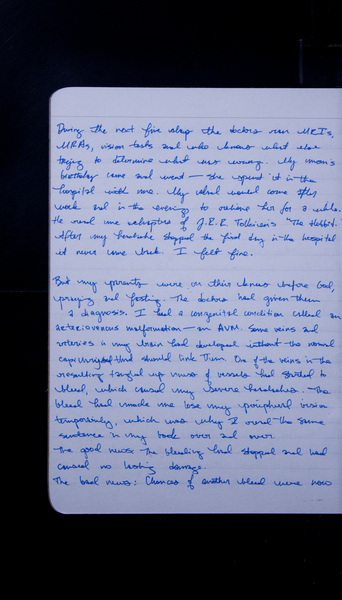 During the next five days the doctors ran MRI's,
MRAs, vision tests and who knows what else
trying to determine what was wrong. My mom's
birthday came and went — she spent it in the
hospital with me. My dad would come after
work and in the evening to relieve her for a while.
He read me chapters of J.R.R. Tolkien's "The Hobbit."
After my headache stopped the first day in the hospital
it never came back. I felt fine.
But my parents were on their knees before God,
praying and fasting. The doctors had given them
a diagnosis. I had a congenital condition called an
arteriovenous malformation — an AVM. Some veins and
arteries in my brain had developed without the normal
capillaries that should link them. One of the veins in the
resulting tangled up mass of vessels had started to
bleed, which caused my severe headaches. The
bleed had made me lose my peripheral vision
temporarily, which was why I read the same
sentence in my book over and over.
The good news: The bleeding had stopped and had
caused no lasting damage.
The bad news: Chances of another bleed were now